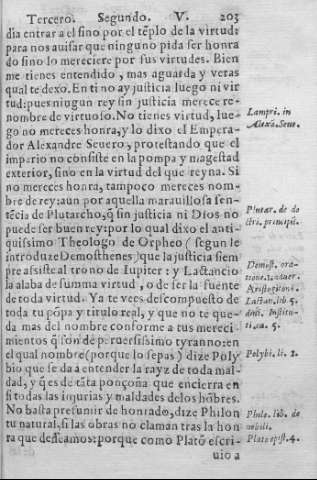 Tercero. Segundo. V. 203
dia entrar a el sino por el tẽplo de la virtud:
para nos auisar que ninguno pida ser honra
do sino lo mereciere por sus virtudes. Bien
me tienes entendido, mas aguarda y veras
qual te dexo. En ti no ay justicia luego ni vir
tud: pues ningun rey sin justicia merece re-
nombre de virtuoso. No tienes virtud, lue-
go no mereces honra, y lo dixo el Empera-
dor Alexandre Seuero, protestando que el
imperio no consiste en la pompa y magestad
exterior, sino en la virtud del que reyna. Si
no mereces honra, tampoco mereces nom-
bre de rey: aun por aquella marauillosa sen-
tẽcia de Plutarcho, q̃ sin justicia ni Dios no
puede ser buen rey: por lo qual dixo el anti-
quissimo Theologo de Orpheo (segun le
introduze Demosthenes) que la justicia siem
pre assiste al trono de Iupiter: y Lactancio
la alaba de summa virtud, o de ser la fuente
de toda virtud. Ya te vees descompuesto de
toda tu põpa y titulo real, y que no te que-
da mas del nombre conforme a tus mereci-
mientos q̃ son de peruersissimo tyranno: en
el qual nombre (porque lo sepas) dize Poly
bio que se da a entender la rayz de toda mal-
dad, y q̃ es de tãta ponçoña que encierra en
si todas las injurias y maldades de los hõbres.
No basta presumir de honrado, dize Philon
tu natural, si las obras no claman tras la hon
ra que desseamos: porque como Platõ escri-
uio a
Lampri. in
Alexã. Seue.
Plutar. de do
ctri. principis.
Demost. ora-
tione. 1. aduer.
Aristogitonẽ.
Lactan. lib 5.
diui. Institu-
ti. ca. 5.
Polybi. li. 2.
Philo. lib. de
nobili.
Plato epist. 4.